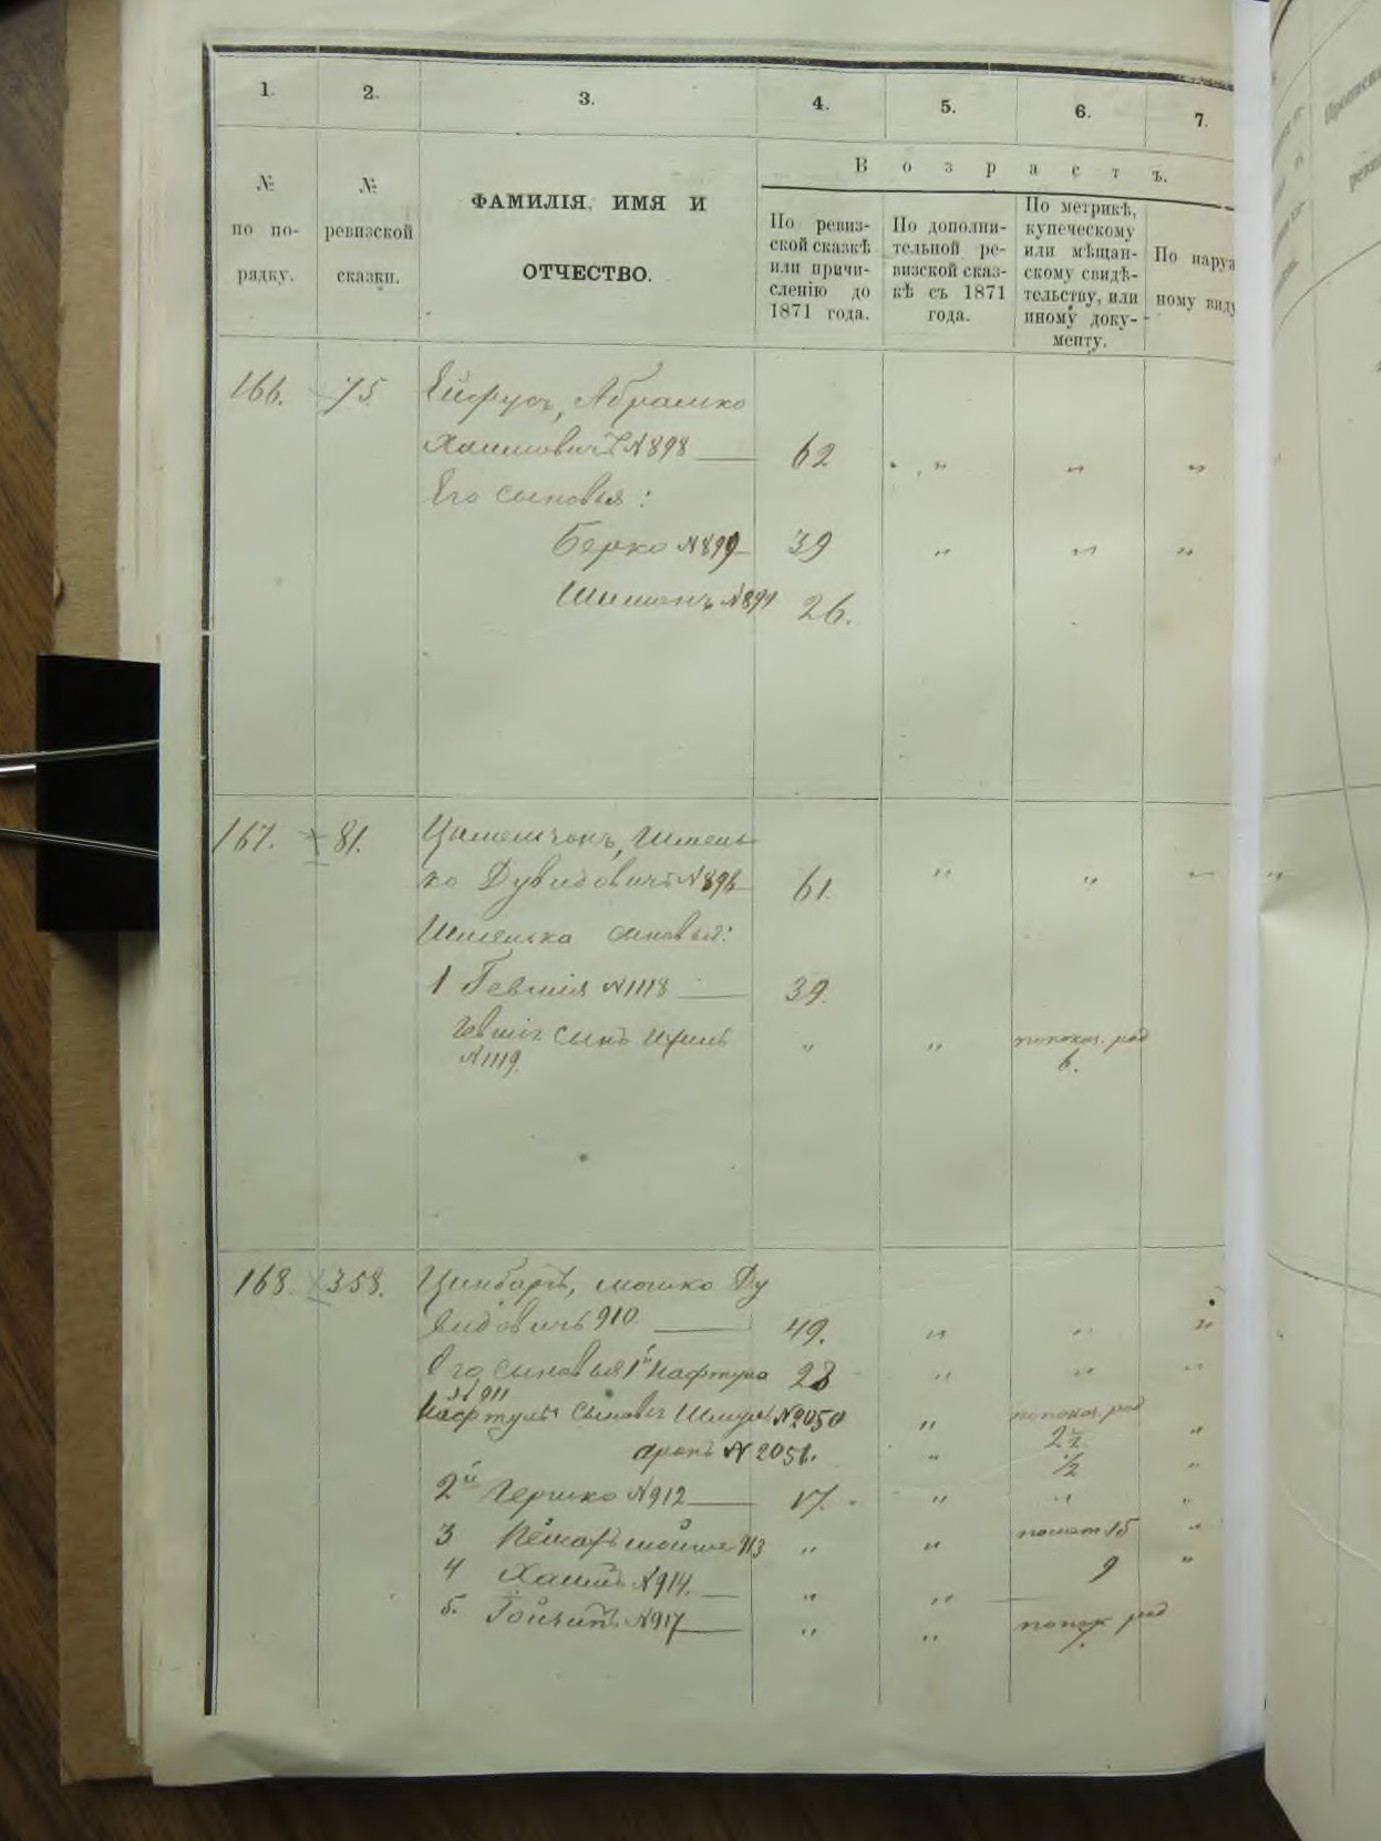 1. 2. 3. 4. 5. 6. 7.
В о з р а с т ъ.
№ по по-
рядку.
№
ревизской
сказки.
ФАМИЛІЯ, ИМЯ И
ОТЧЕСТВО.
По ревиз-
ской сказкѣ
или причи-
сленію до
1871 года.
По дополни-
тельной ре-
визской сказ-
кѣ съ 1871
года.
По метрикѣ,
купеческому
или мѣщан-
скому свидѣ-
тельству, или
иному доку-
менту.
По наруж
ному виду
166. 75. Абрамко
Хаимовичъ №898 62 „ „ „
Его сыновья:
Берко №899 39 „ „ „
Шимонъ №899 26.
167. 81. Шмень-
ко Дувидовичъ №896 61. „ „ „
Шменька сыновья:
1 Гевшія №1118 39.
сынъ „ „ по показ. род
№1119. 6.
168. 358. Цинбаргъ, Мошко Ду
видовичъ 910. 49. „ „ „
Его сыновья 1й Нафтула 28 „ „ „
№911
Нафтулы сыновья Шмуль №2050 „ по показ. род „
2½
Аронъ №2051. „ ½ „
2й Гершко №912 17. „ „ „
3 913 „ „ 15 „
4 Хаимъ №914. „ „ 9 „
5. №917 „ „ по пок род
7.